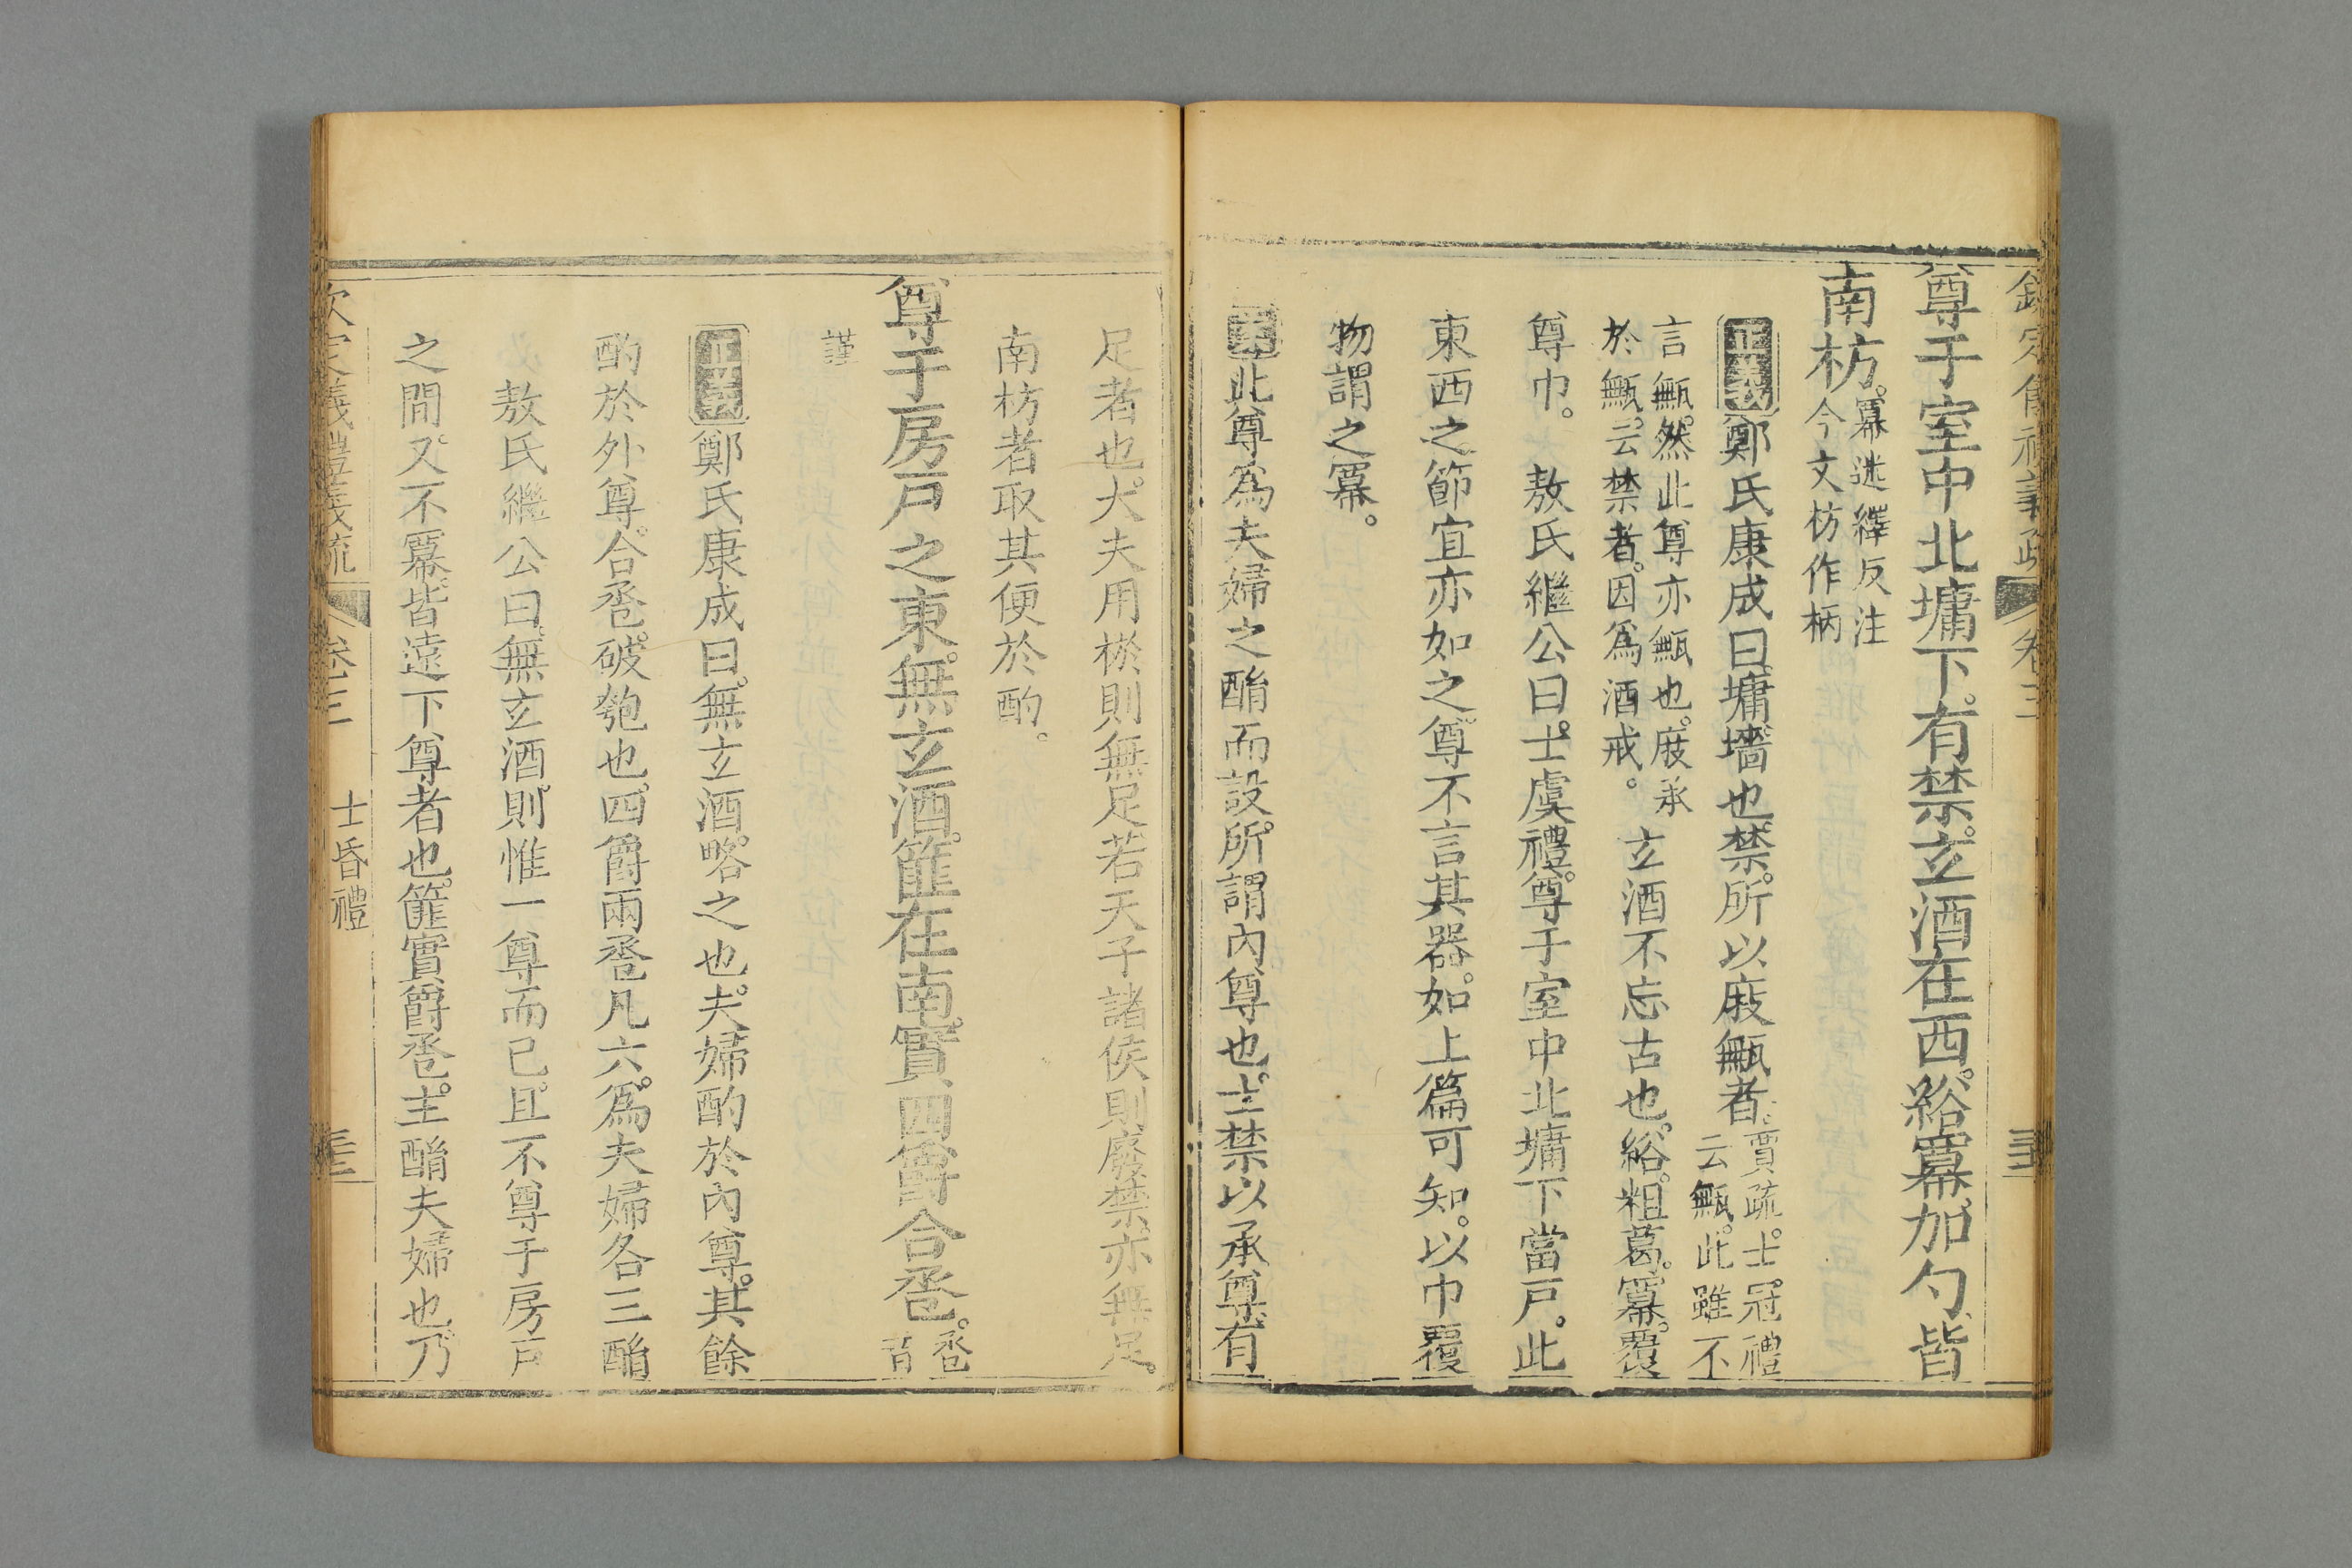 尊于室中北墉下。有禁。玄酒在西。綌冪。加勺。皆
南枋。冪迷繹反注
今文枋作柄
正義鄭氏康成曰。墉。墻也。禁。所以庪甒者。賈疏。士冠禮
云甒。此雖不
言甒。然此尊亦甒也。庪承
於甒。云禁者。因爲酒戒。
玄酒不忘古也。綌。粗葛。冪。覆
尊巾。敖氏繼公曰。士虞禮。尊于室中北墉下當戶。此
東西之節宜亦如之。尊不言其器。如上篇可知。以巾覆
物謂之冪。
案此尊爲夫婦之酳而設。所謂內尊也。士禁以承尊。有
足者也。大夫用棜則無足若天子諸侯則廢禁。亦無足。
南枋者取其便於酌。
尊于房戶之東。無玄酒。篚在南。實四爵合卺。卺音
謹
正義鄭氏康成曰。無玄酒。略之也。夫婦酌於內尊。其餘
酌於外尊。合卺。破匏也。四爵兩卺凡六。爲夫婦各三酳
敖氏繼公曰。無玄酒。則惟一尊而已。且不尊于房戶
之間。又不冪。皆遠下尊者也。篚實爵卺。主酳夫婦也。乃
欽定義禮義疏 卷三 士昏禮